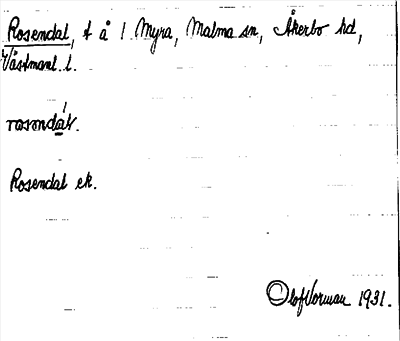 Rosendal, t å 1 Myra, Malma sn, Åkerbo hd,
Västmanl. l.
rosondáł.
Rosendal ek.
Olof Norman 1931.